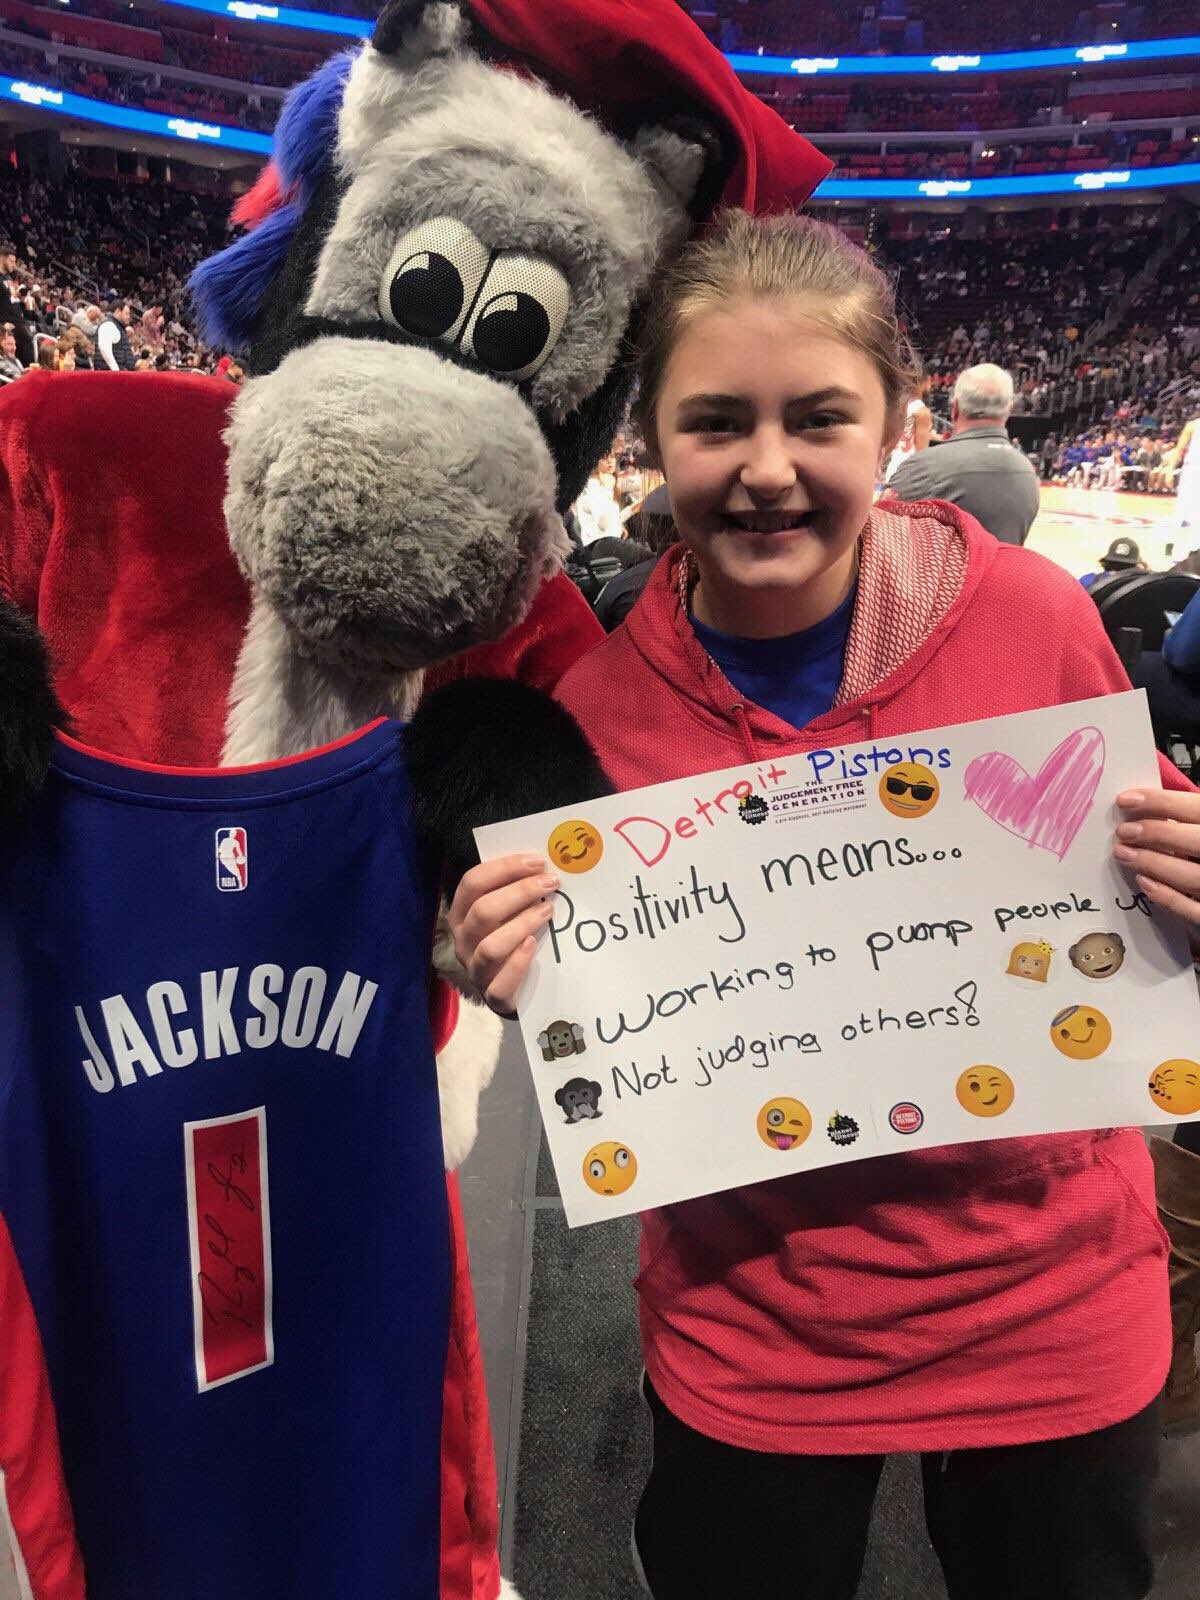 NBA
JACKSON
1
Detroit Pistons
planet fitness
THE JUDGEMENT FREE GENERATION
a pro-kindness, anti-bullying movement
Positivity means...
working to pump people up
Not judging others!
planet fitness
DETROIT PISTONS